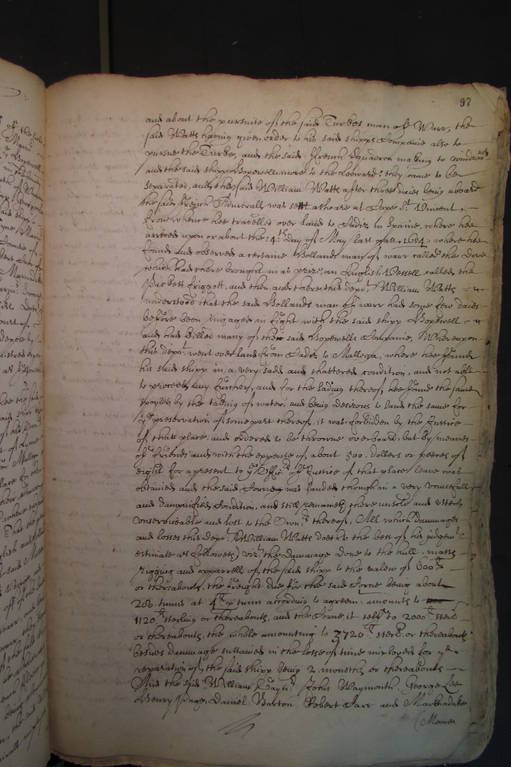 97
and about the pursuite of the said Turkes man of Warr, the
said Watts having given order to his said shipps Companie also to
pursue the Turke, and the said ffrench Squadron making to
and the said shipp Hopewell more to the leeward; they came to be
separated, and the said William Watts after three daies being aboard
the said ffrench Admirall was sett ashoare at Cape St Vincent
from whence hee travelled over land to Cadiz in Spaine, where hee
arrived upon or about the 14th day of May last 1654, where hee
found and observed a certaine Hollands man of warr called the
which had there brought in as prize an English Vessell called the
ffriggott, and then and there this dept William Watts
understood that the said Hollands man of warr had some few daies
before been ingaged in fight with the said shipp Hopewell
and had killed many of the said Hopewells Companie, Whereupon
this depont went over land from Cadiz to Mallaga, where hee found
his said shipp in a very sad and shattered condition, and not able
to proceede any further, and for the lading thereof hee found the same
spoyled by the taking of water, and being desirous to land the same for
ye preservation of some part thereof, it was forbidden by the Justice
of that place, and ordered to be throwne over board, but by meanes
of ffriends and with the expence of about 500 dollars or peeces of
eight for a present to ye Justice of that place, leave was
obtained and the said Corne was landed though in a very
and damnified condition, and still remaineth there unsold and utterly
unserviceable and lost to the thereof, All which dammages
and losses this dept William Watts doeth to the best of his judgmt
estimate as followeth, vizt the dammage done to the hull, masts
rigging and apparrell of the said shipp to the valew of 600li
or thereabouts, the freight due for the said Corne being about
280 tunns at 4li per tunn according to agreemt amounts to
1120li sterling or thereabouts, and the Corne it selfe to 2000li sterl
or thereabouts, the whole amounting to 3720li sterl or thereabouts
besides dammage sustained in the losse of time imployed for ye
reparation of the said shipp being 2 months or thereabouts
And the said William John Waymouth George Lee
Henry Page, Daniel Barton Robert and Marmaduke